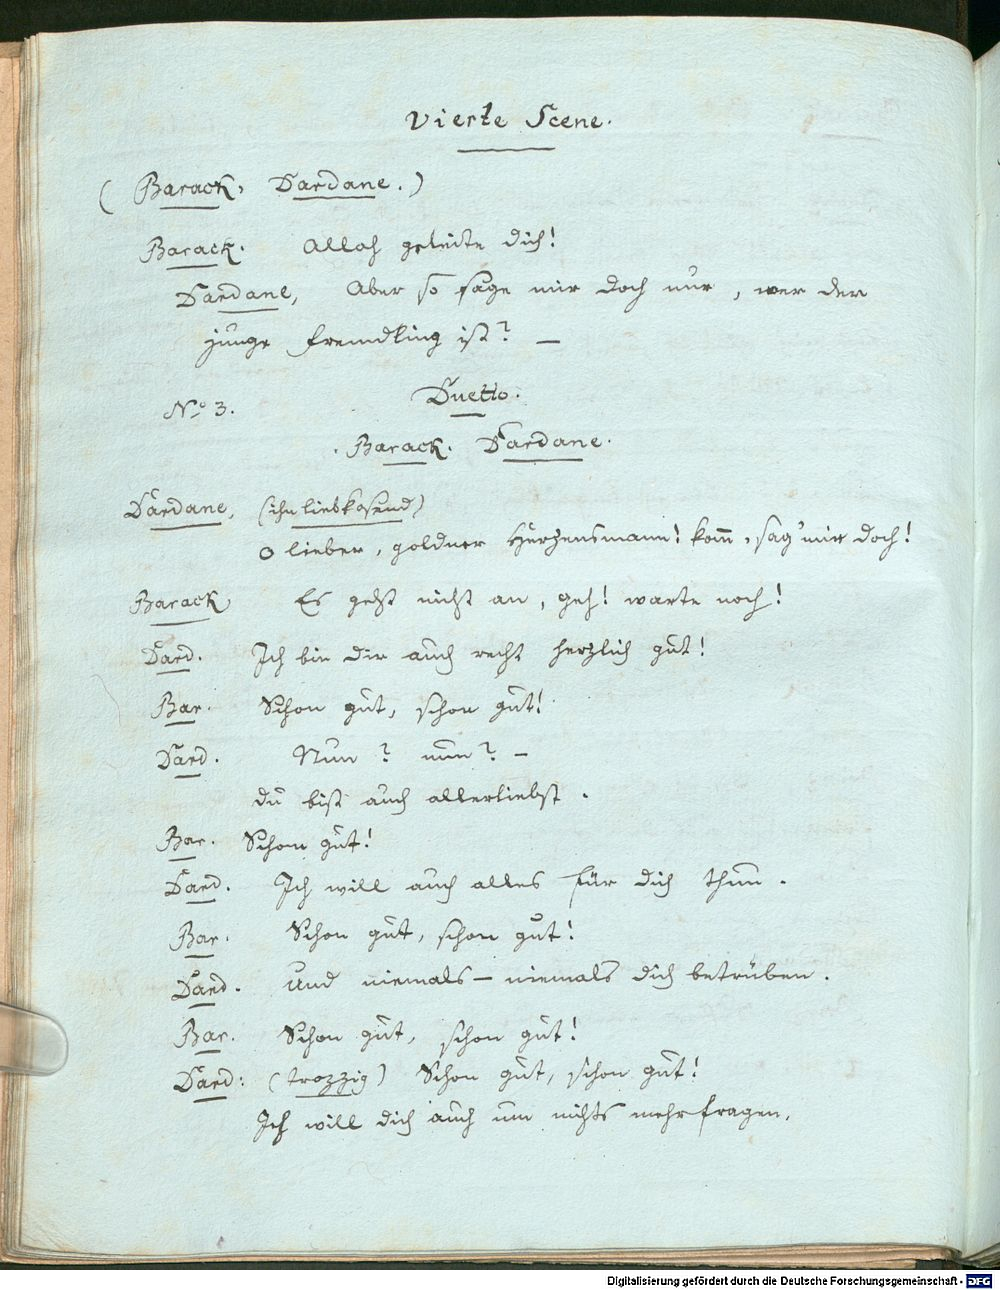 Vierte Scene.
(Barack, Dardane.)
Barack. Allah geleite dich!
Dardane, Aber so sage mir doch nur, wer der
junge Fremdling ist? —
No 3. Duetto.
Barack. Dardane.
Dardane, (ihn liebkosend)
O lieber, goldner Herzensmann! kom̅, sag' mir doch!
Barack Es geht nicht an, geh! warte noch!
Dard. Ich bin dir auch recht herzlich gut!
Bar. Schon gut, schon gut!
Dard. Nun? nun? —
du bist auch allerliebst.
Bar. Schon gut!
Dard. Ich will auch alles für dich thun.
Bar. Schon gut, schon gut!
Dard. Und niemals — niemals dich betrüben.
Bar. Schon gut, schon gut!
Dard: (trozzig) Schon gut, schon gut!
Ich will dich auch um nichts mehr fragen,
Digitalisierung gefördert durch die Deutsche Forschungsgemeinschaft - DFG